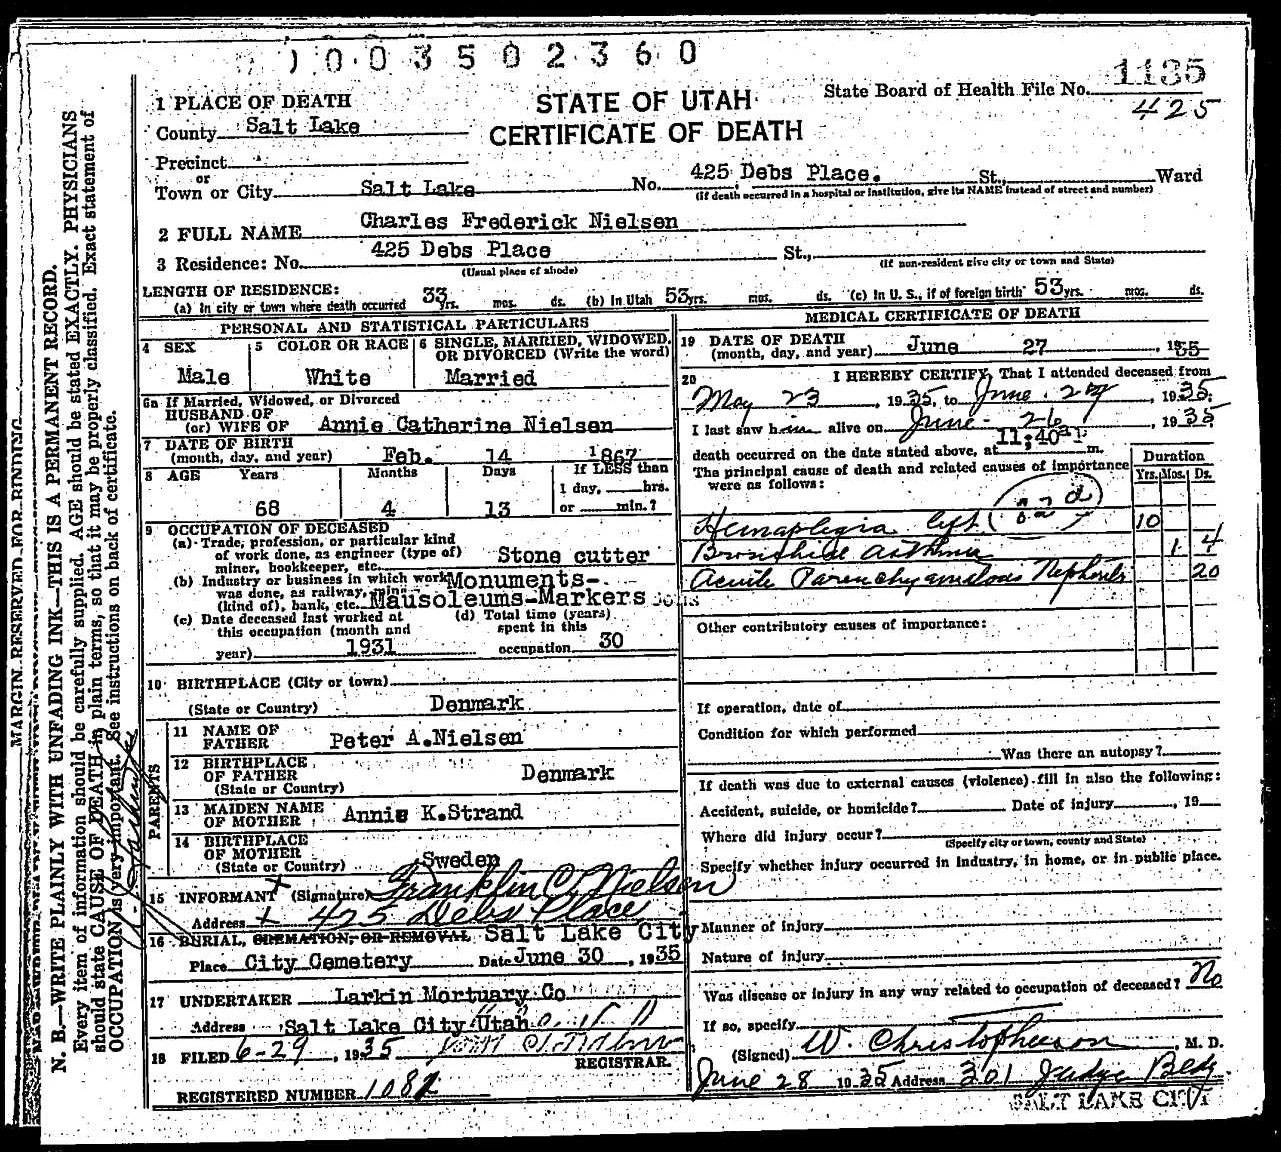 1003502360
1135
State Board of Health File No.
425
STATE OF UTAH
CERTIFICATE OF DEATH
1 PLACE OF DEATH
County Salt Lake
Precinct
or
Town or City Salt Lake No. 425 Debs Place. St., Ward
(If death occurred in a hospital or institution, give its NAME instead of street and number)
2 FULL NAME Charles Frederick Nielsen
3 Residence: No. 425 Debs Place St.,
(Usual place of abode) (If non-resident give city or town and State)
LENGTH OF RESIDENCE:
(a) In city or town where death occurred 33 yrs. mos. ds. (b) In Utah 53 yrs. mos. ds. (c) In U. S., if of foreign birth 53 yrs. mos. ds.
PERSONAL AND STATISTICAL PARTICULARS
4 SEX 5 COLOR OR RACE 6 SINGLE, MARRIED, WIDOWED, OR DIVORCED (Write the word)
Male White Married
6a If Married, Widowed, or Divorced
HUSBAND OF
(or) WIFE OF Annie Catherine Nielsen
7 DATE OF BIRTH
(month, day, and year) Feb. 14 1867
8 AGE Years Months Days If LESS than
1 day, hrs.
68 4 13 or min.?
9 OCCUPATION OF DECEASED
(a) Trade, profession, or particular kind
of work done, as engineer (type of)
miner, bookkeeper, etc. Stone cutter
(b) Industry or business in which work Monuments-
was done, as railway,
(kind of), bank, etc. Mausoleums-Markers
(c) Date deceased last worked at
this occupation (month and
year) 1931
(d) Total time (years)
spent in this
occupation 30
10 BIRTHPLACE (City or town)
(State or Country) Denmark
PARENTS
11 NAME OF
FATHER Peter A.Nielsen
12 BIRTHPLACE
OF FATHER Denmark
(State or Country)
13 MAIDEN NAME
OF MOTHER Annie K.Strand
14 BIRTHPLACE
OF MOTHER
(State or Country) Sweden
15 INFORMANT (Signature) Franklin C. Nielsen
Address 425 Debs Place
16 BURIAL, CREMATION, OR REMOVAL Salt Lake City
Place City Cemetery Date June 30 , 1935
17 UNDERTAKER Larkin Mortuary Co
Address Salt Lake City Utah
18 FILED 6-29 , 1935
REGISTRAR.
REGISTERED NUMBER 1082
MEDICAL CERTIFICATE OF DEATH
19 DATE OF DEATH
(month, day, and year) June 27 , 1935
20 I HEREBY CERTIFY, That I attended deceased from
May 23 , 1935, to June 27 , 1935.
I last saw him alive on June - 26 , 1935
death occurred on the date stated above, at 11;40 m.
The principal cause of death and related causes of importance
were as follows:
Duration
Yrs. Mos. Ds.
Hemaplegia left 10
Bronchial asthma 1 4
Acute Parenchymatous Nephritis 20
Other contributory causes of importance:
If operation, date of
Condition for which performed
Was there an autopsy?
If death was due to external causes (violence) fill in also the following:
Accident, suicide, or homicide? Date of injury , 19
Where did injury occur?
(Specify city or town, county and State)
Specify whether injury occurred in industry, in home, or in public place.
Manner of injury
Nature of injury
Was disease or injury in any way related to occupation of deceased? No
If so, specify
(Signed) W. Christopherson , M. D.
June 28 1935 Address 301 Judge Bldg
SALT LAKE CITY
MARGIN RESERVED FOR BINDING
N. B.—WRITE PLAINLY WITH UNFADING INK—THIS IS A PERMANENT RECORD.
Every item of information should be carefully supplied. AGE should be stated EXACTLY. PHYSICIANS
should state CAUSE OF DEATH in plain terms, so that it may be properly classified. Exact statement of
OCCUPATION is very important. See instructions on back of certificate.